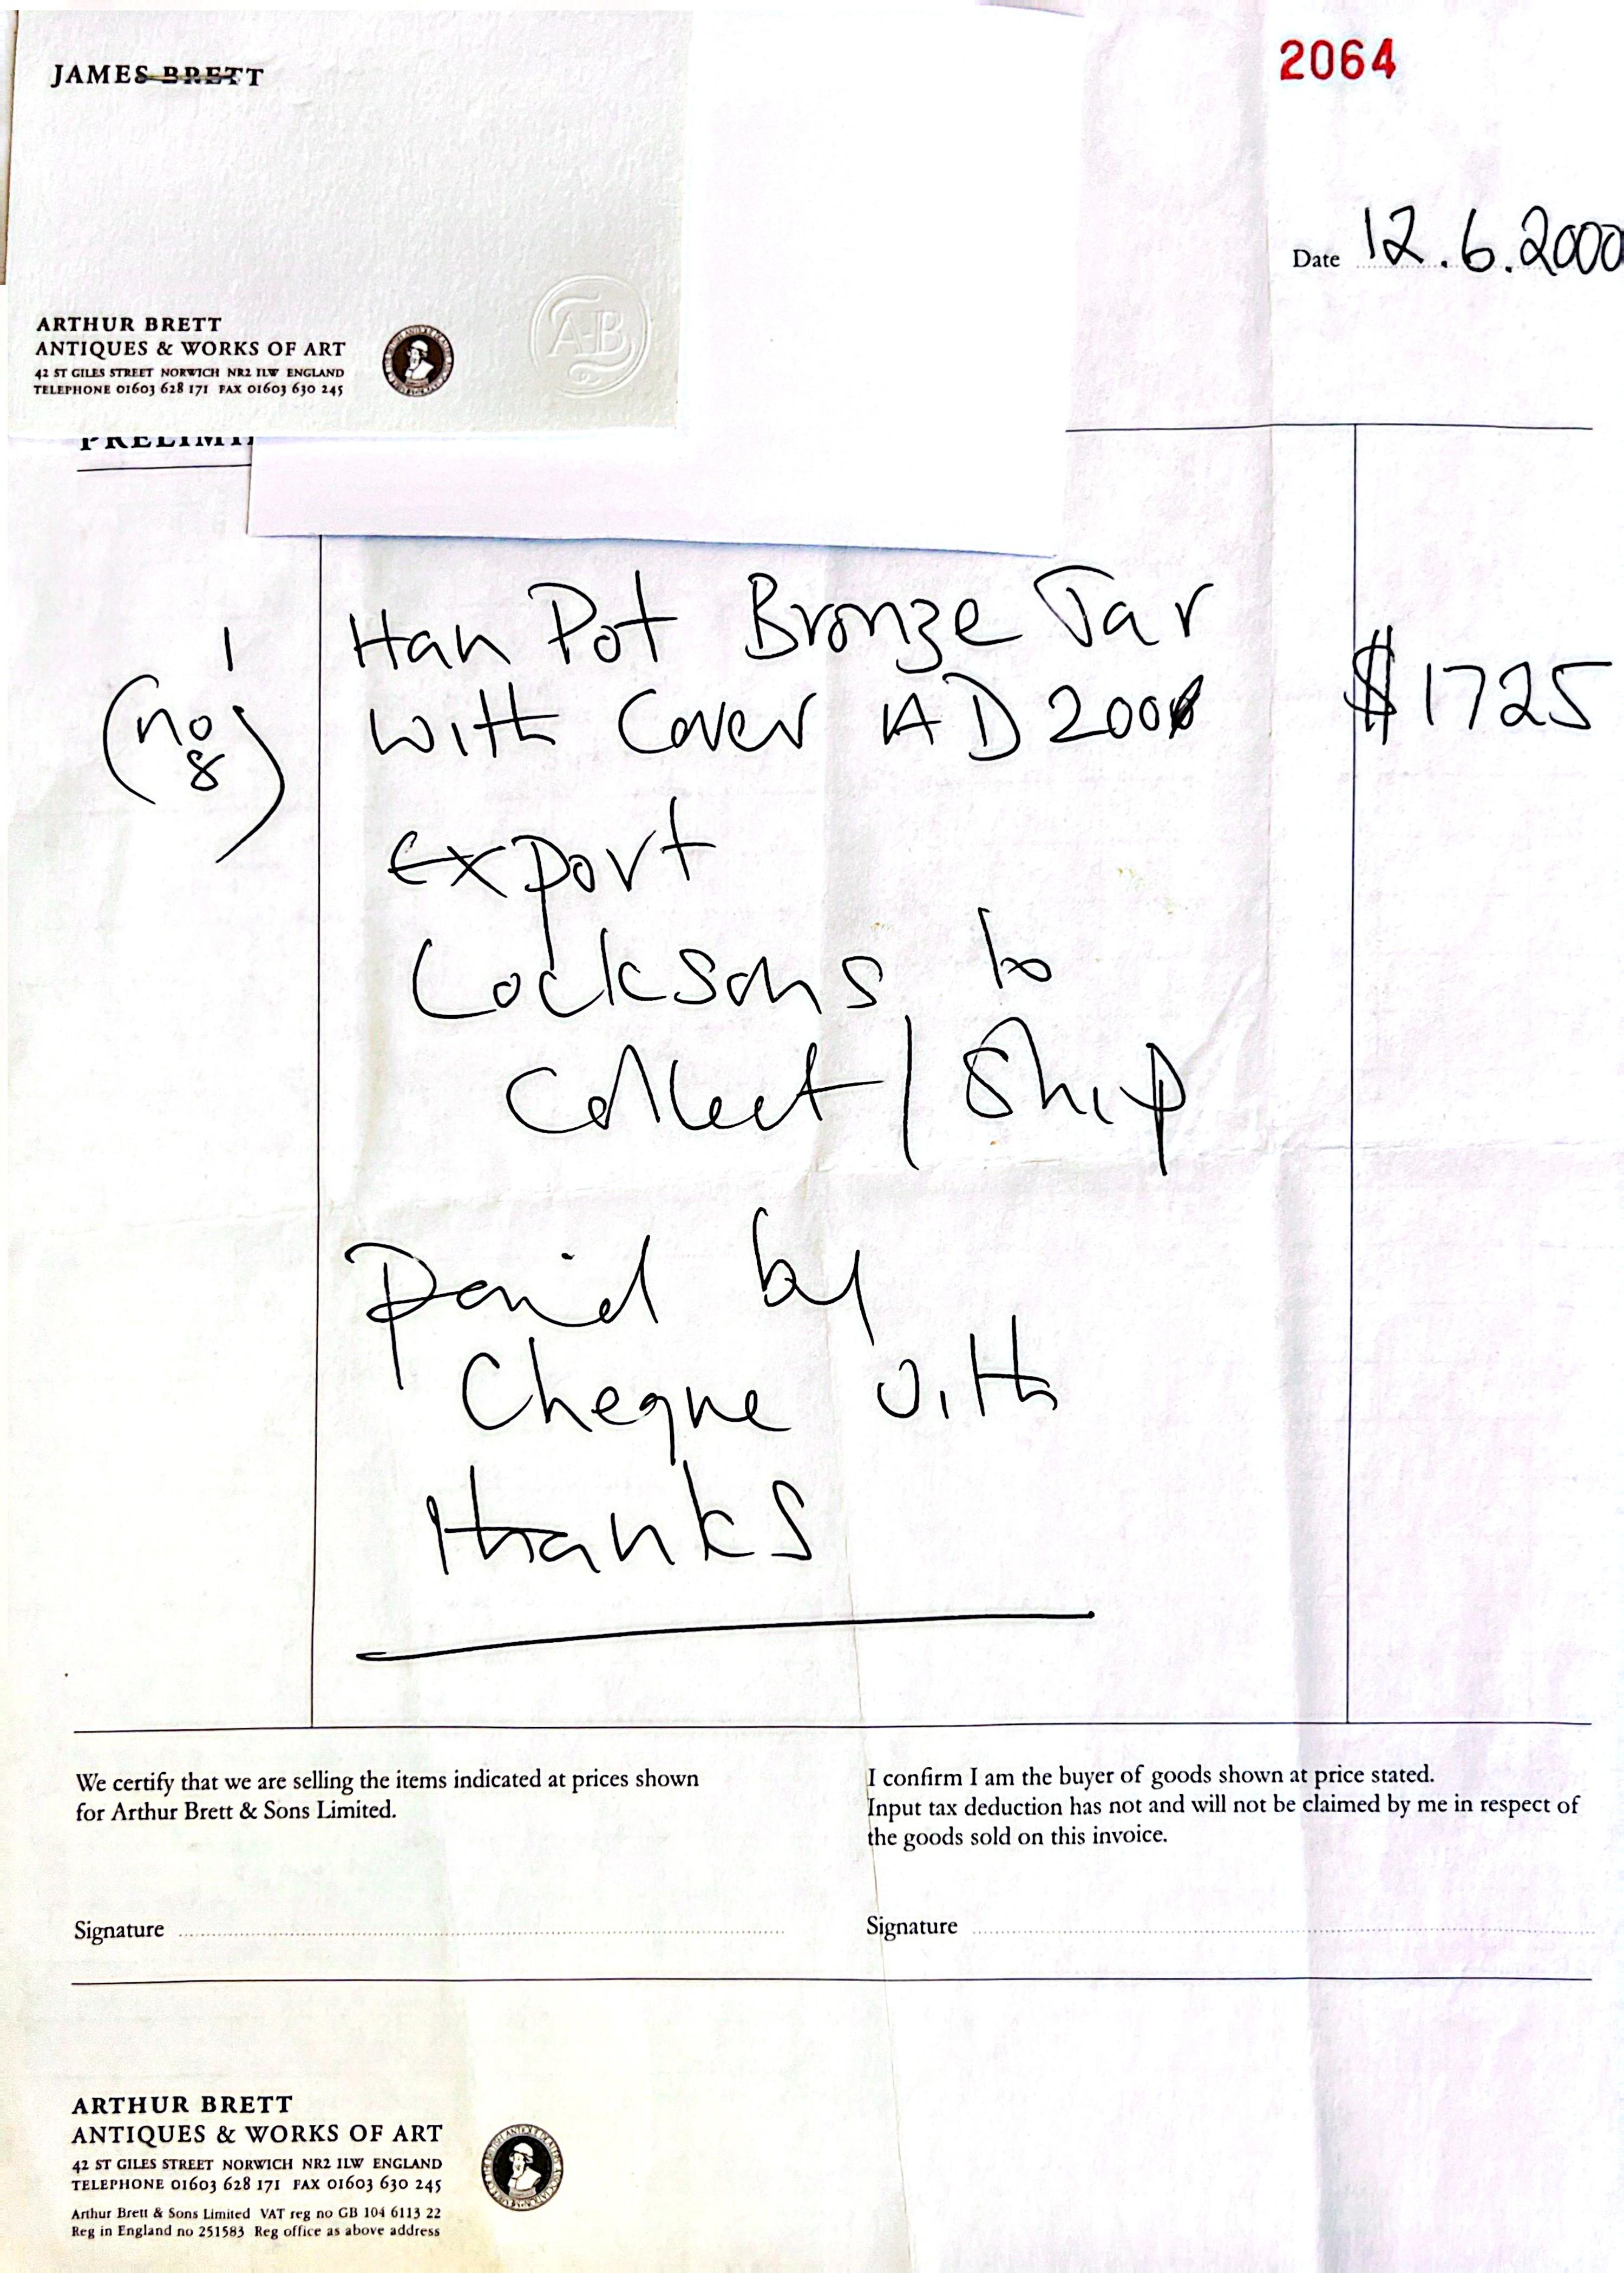 JAMES BRETT
2064
Date 12.6.2000
ARTHUR BRETT
ANTIQUES & WORKS OF ART
42 ST GILES STREET NORWICH NR2 1LW ENGLAND
TELEPHONE 01603 628 171 FAX 01603 630 245
AB
PRELIMI
1 Han Pot Bronze Jar $1725
(no 8) with Cover AD 200
Export
Locksons to
Collect / Ship
Paid by
Cheque with
thanks
We certify that we are selling the items indicated at prices shown
for Arthur Brett & Sons Limited.
I confirm I am the buyer of goods shown at price stated.
Input tax deduction has not and will not be claimed by me in respect of
the goods sold on this invoice.
Signature
Signature
ARTHUR BRETT
ANTIQUES & WORKS OF ART
42 ST GILES STREET NORWICH NR2 1LW ENGLAND
TELEPHONE 01603 628 171 FAX 01603 630 245
Arthur Brett & Sons Limited VAT reg no GB 104 6113 22
Reg in England no 251583 Reg office as above address